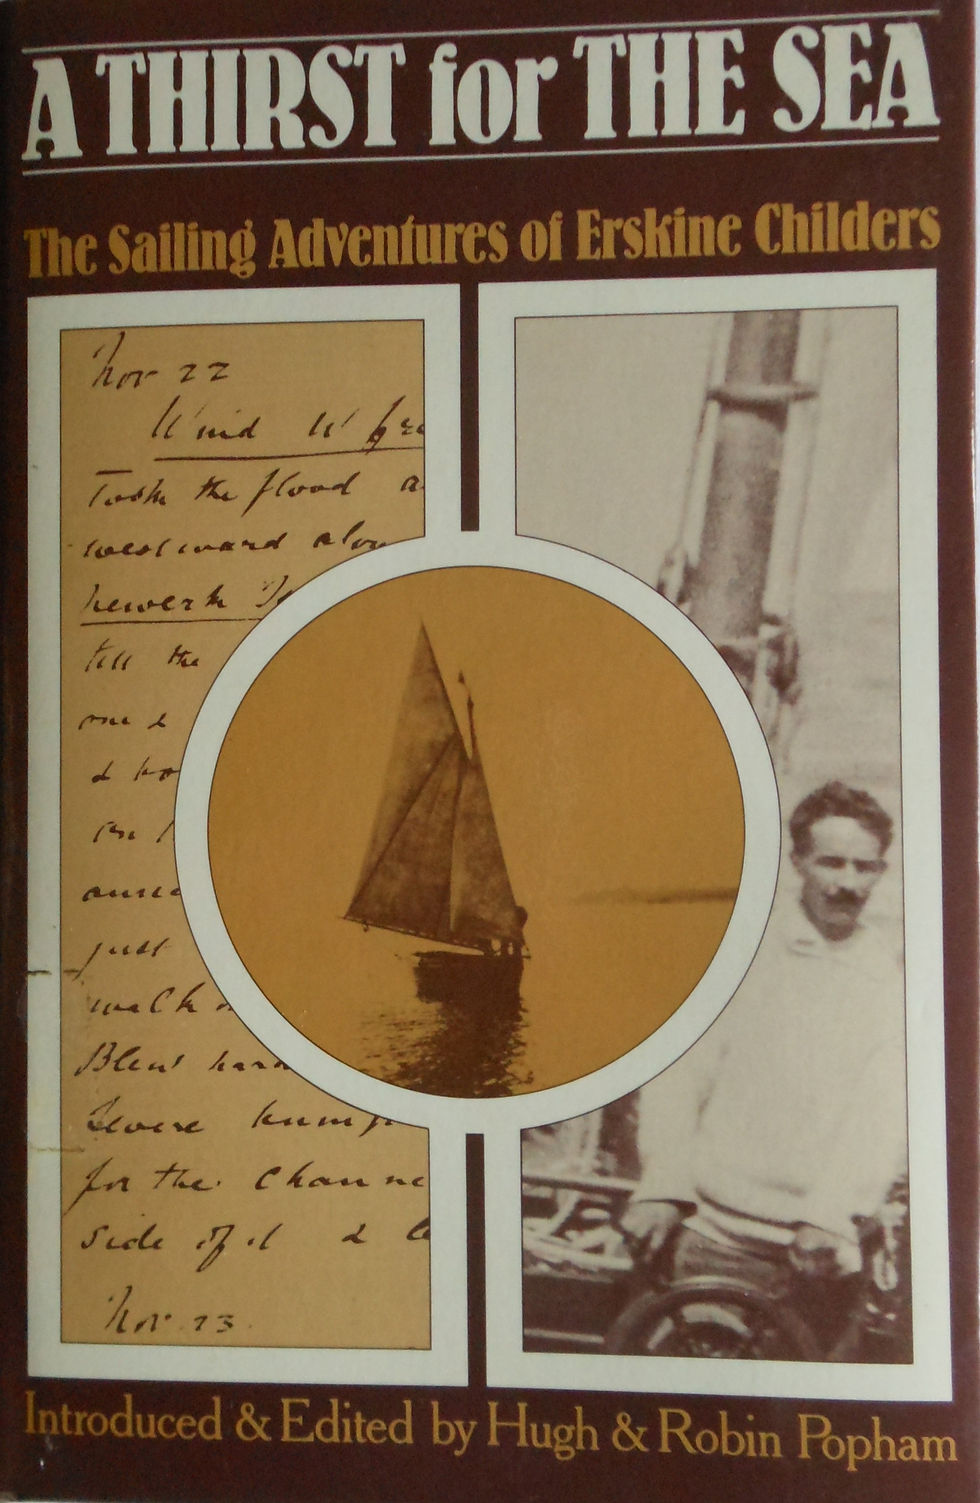 A THIRST for THE SEA
The Sailing Adventures of Erskine Childers
Nov 22
Wind W
Took the flood a
westward alon
till the
one &
& ho
on
just
walk
Blew hard
for the channe
side of it & b
Nov 23
Introduced & Edited by Hugh & Robin Popham